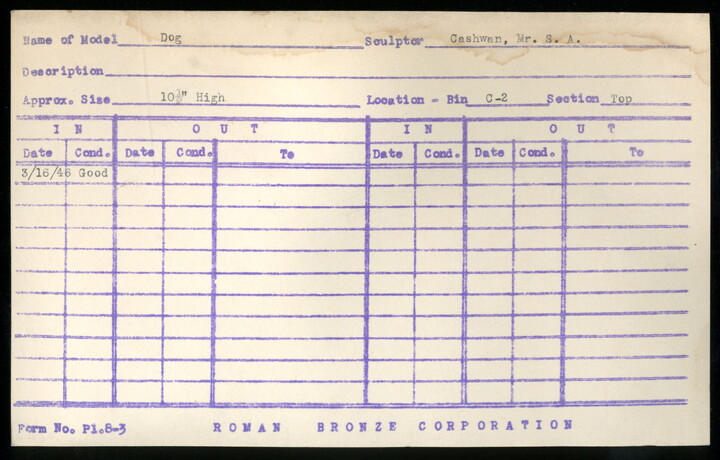 Name of Model Dog Sculptor Cashwan, Mr. S. A.
Description
Approx. Size 10½" High Location - Bin C-2 Section Top
IN OUT IN OUT
Date Cond. Date Cond. To Date Cond. Date Cond. To
3/16/46 Good
Form No. P1.8-3 ROMAN BRONZE CORPORATION